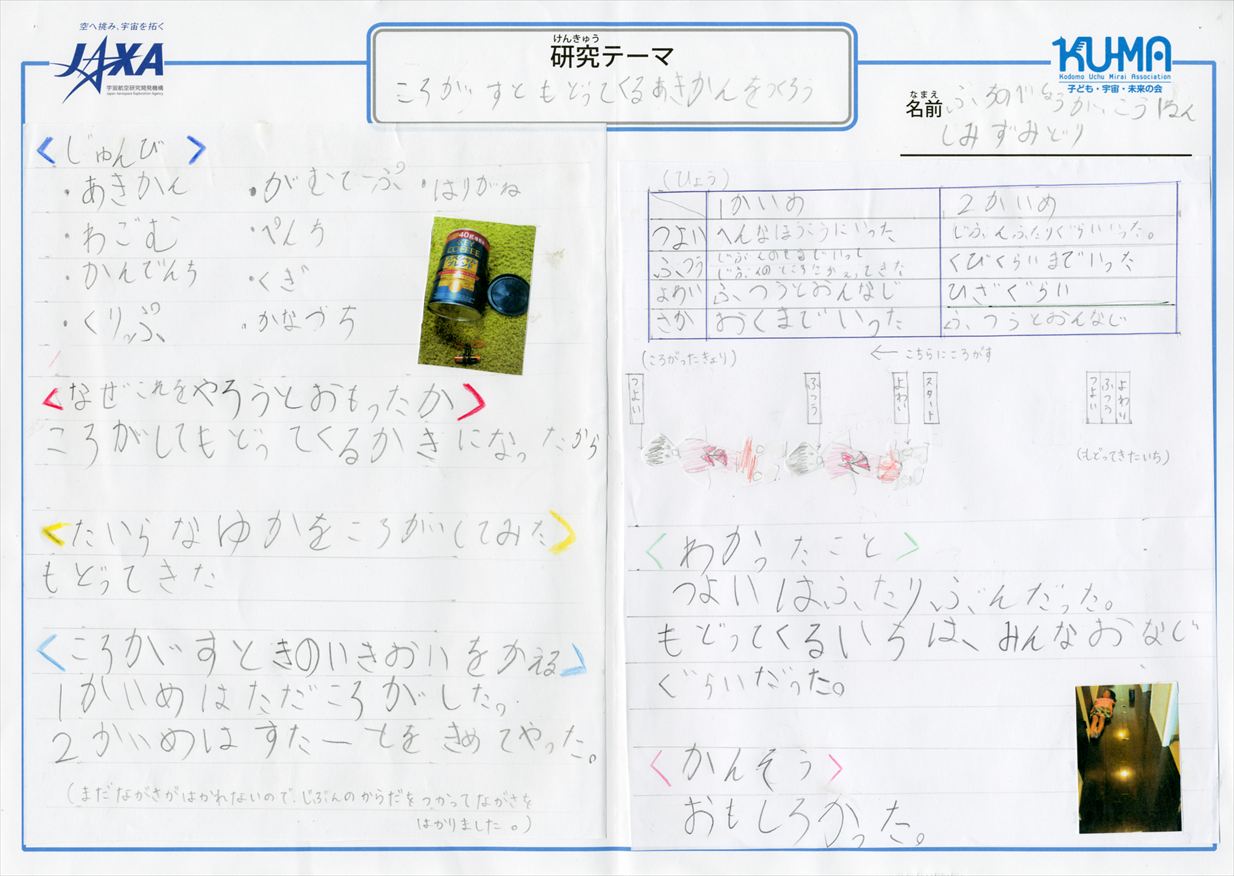 空へ挑み、宇宙を拓く
JAXA
宇宙航空研究開発機構
Japan Aerospace Exploration Agency
けんきゅう
研究テーマ
ころがすともどってくるあきかんをつくろう
KU-MA
Kodomo Uchu Mirai Association
子ども・宇宙・未来の会
なまえ
名前
しみずみどり
<じゅんび>
・あきかん ・がむてーぷ ・はりがね
・わごむ ・ぺんち
・かんでんち ・くぎ
・くりっぷ ・かなづち
<なぜこれをやろうとおもったか>
ころがしてもどってくるかきになったから
<たいらなゆかをころがしてみた>
もどってきた
<ころがすときのいきおいをかえる>
1かいめはただころがした。
2かいめはすたーとをきめてやった。
(まだながさがはかれないので、じぶんのからだをつかってながさを
はかりました。)
(ひょう)
1かいめ 2かいめ
つよい へんなほうこうにいった じぶんふたりぐらいいった。
ふつう
くびくらいまでいった
よわい ふつうとおんなじ ひざぐらい
さか おくまでいった ふつうとおんなじ
(ころがったきょり) ← こちらにころがす
つよい ふつう よわい スタート つよい ふつう よわい
(もどってきたいち)
<わかったこと>
つよいはふたりぶんだった。
もどってくるいちは、みんなおなじ
ぐらいだった。
<かんそう>
おもしろかった。